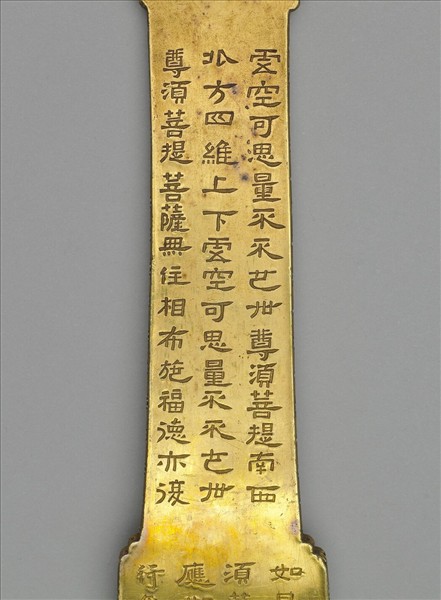 虛空可思量不不也世尊須菩提南西
北方四維上下虛空可思量不不也世
尊須菩提菩薩無住相布施福德亦復
如
須
應
行